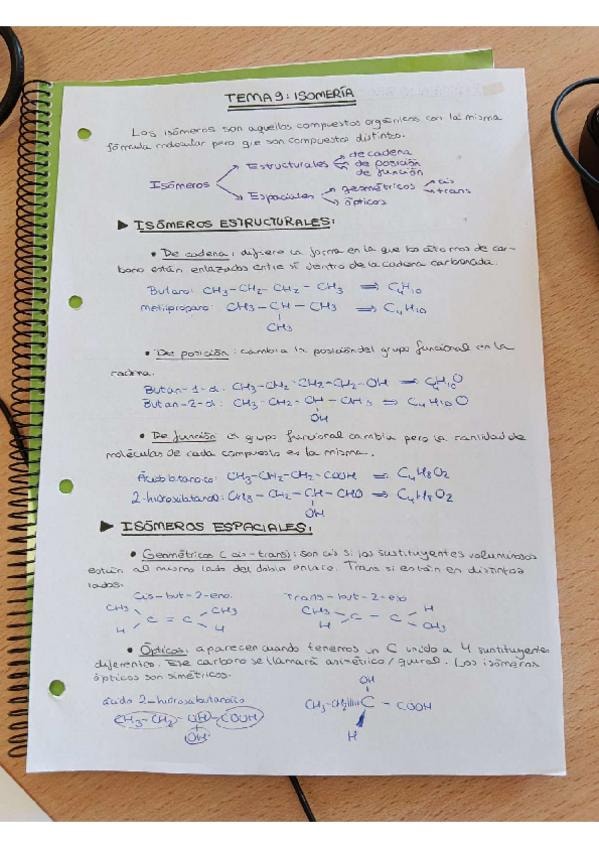 TEMA 9: ISOMERÍA
Los isómeros son aquellos compuestos orgánicos con la misma
fórmula molecular pero que son compuestos distintos.
Isómeros
Estructurales
de cadena
de posición
de función
Espaciales
geométricos
cis
trans
ópticos
► ISÓMEROS ESTRUCTURALES:
• De cadena: difiere la forma en la que los átomos de car-
bono están enlazados entre sí dentro de la cadena carbonada.
Butano: CH3-CH2-CH2-CH3 ⇒ C4H10
metilpropano: CH3-CH-CH3 ⇒ C4H10
CH3
• De posición: cambia la posición del grupo funcional en la
cadena.
Butan-1-ol: CH3-CH2-CH2-CH2-OH ⇒ C4H10O
Butan-2-ol: CH3-CH2-CH-CH3 ⇒ C4H10O
OH
• De función: el grupo funcional cambia pero la cantidad de
moléculas de cada compuesto es la misma.
Ácido butanoico: CH3-CH2-CH2-COOH ⇒ C4H8O2
2-hidroxibutanal: CH3-CH2-CH-CHO ⇒ C4H8O2
OH
► ISÓMEROS ESPACIALES:
• Geométricos (cis-trans): son cis si los sustituyentes voluminosos
están al mismo lado del doble enlace. Trans si están en distintos
lados.
Cis-but-2-eno. Trans-but-2-eno
CH3 CH3 CH3 H
C = C C - C
H H H CH3
• Ópticos: aparecen cuando tenemos un C unido a 4 sustituyentes
diferentes. Ese carbono se llamará asimétrico/quiral. Los isómeros
ópticos son simétricos.
ácido 2-hidroxibutanoico
CH3-CH2-CH-COOH
OH
OH
CH3-CH2 C - COOH
H